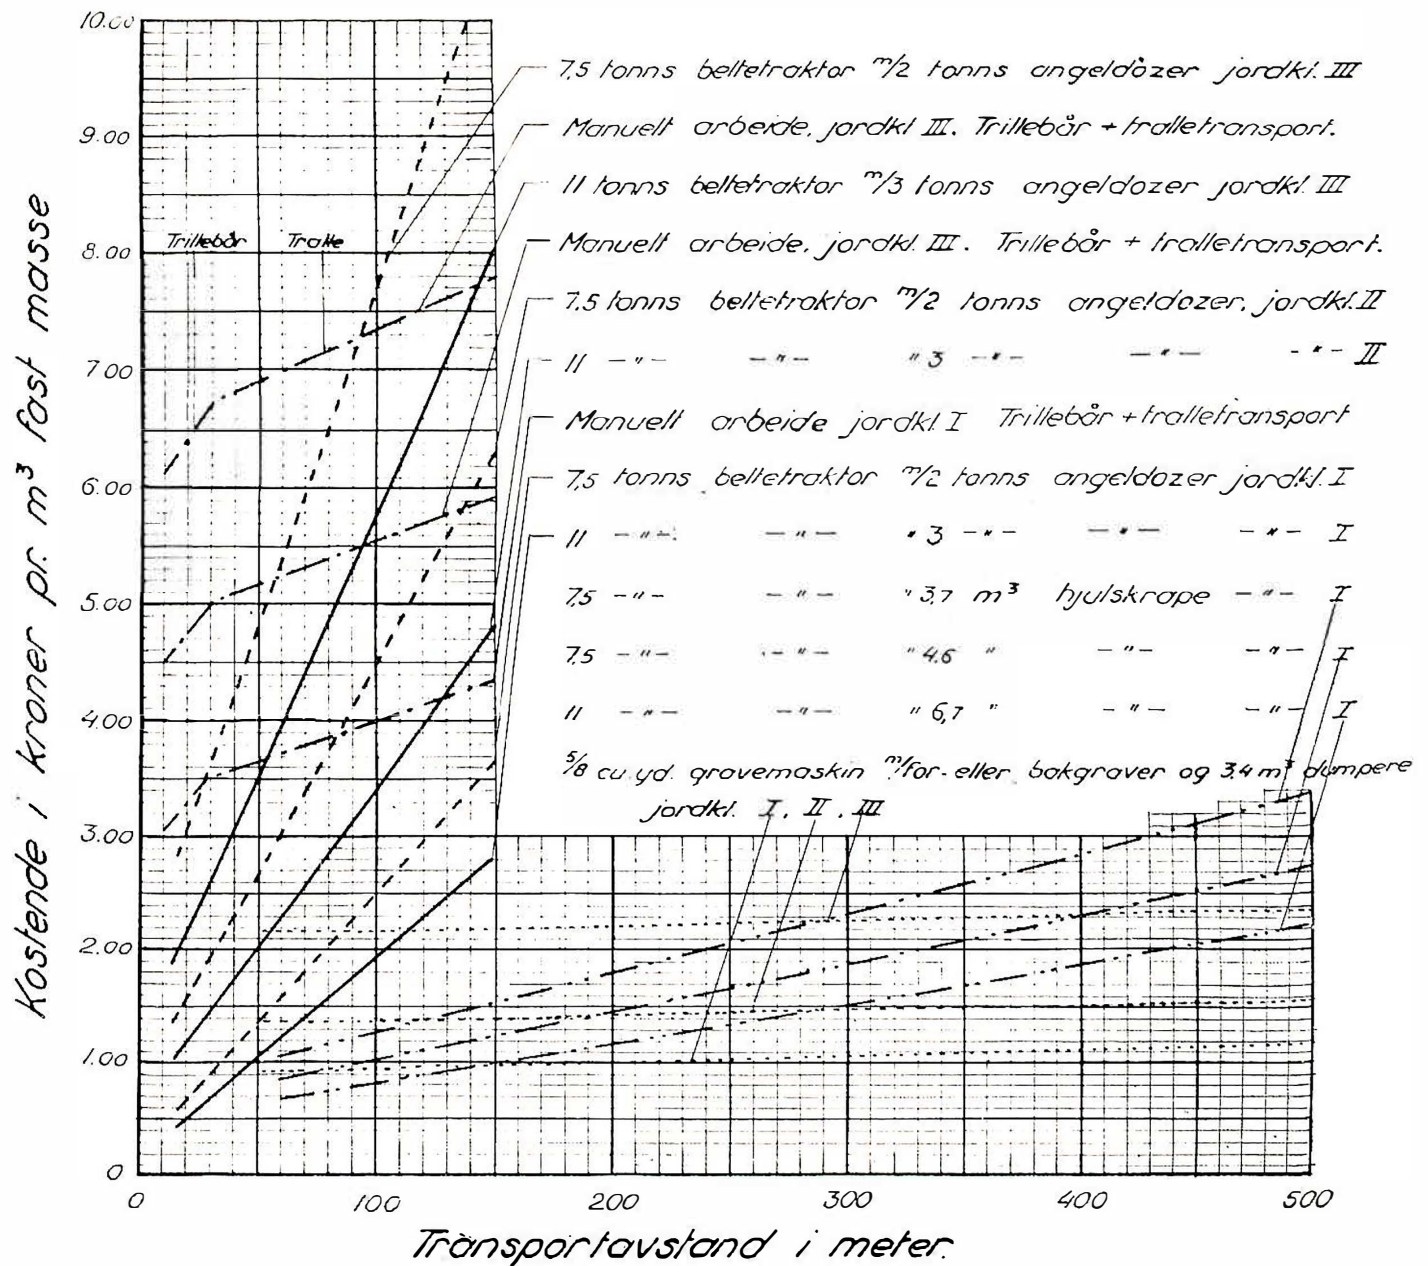 Kostende i kroner pr. m³ fast masse
10.00
9.00
8.00
7.00
6.00
5.00
4.00
3.00
2.00
1.00
0
Trillebår Tralle
7,5 tonns beltetraktor m/2 tonns angeldozer jordkl. III
Manuelt arbeide, jordkl III. Trillebår + tralletransport.
11 tonns beltetraktor m/3 tonns angeldozer jordkl. III
Manuelt arbeide, jordkl. III. Trillebår + tralletransport.
7.5 tonns beltetraktor m/2 tonns angeldozer, jordkl. II
11 -"- -"- "3 -"- -"- -"- II
Manuelt arbeide jordkl. I Trillebår + tralletransport
7,5 tonns beltetraktor m/2 tonns angeldozer jordkl. I
11 -"- -"- "3 -"- -"- -"- I
7,5 -"- -"- "3,7 m³ hjulskrape -"- I
7,5 -"- -"- "4.6 " -"- -"- I
11 -"- -"- "6,7 " -"- -"- I
5/8 cu.yd. gravemaskin m/for- eller bakgraver og 3,4 m³ dumpere
jordkl. I, II, III
0 100 200 300 400 500
Transportavstand i meter.